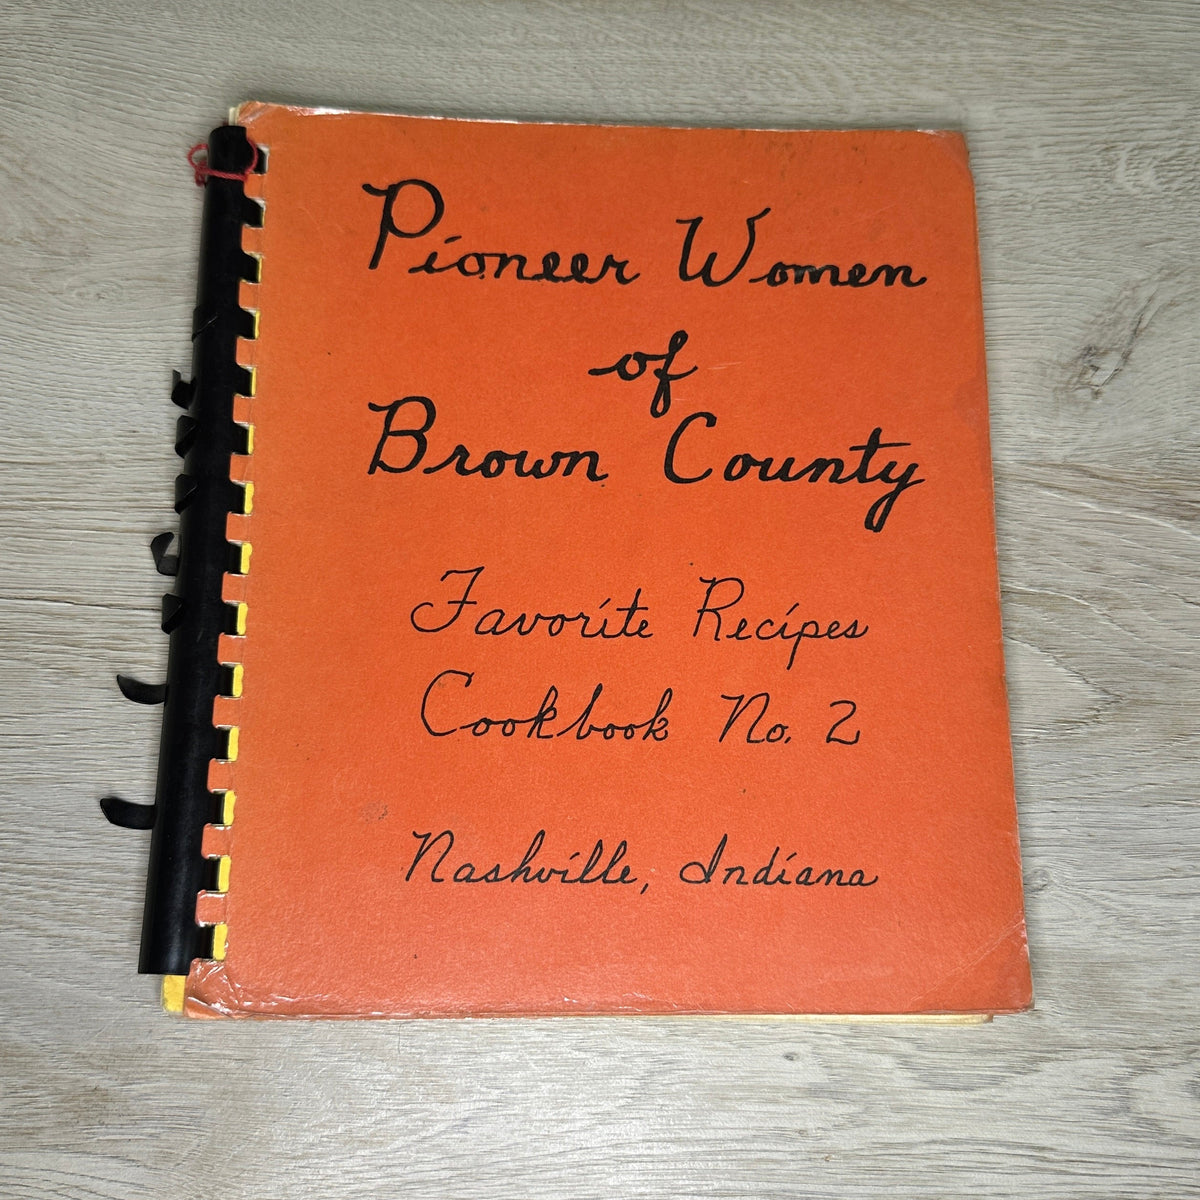 Pioneer Women
of
Brown County
Favorite Recipes
Cookbook No. 2
Nashville, Indiana